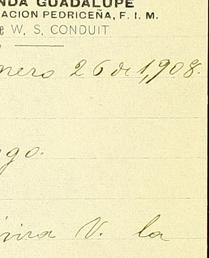 NDA GUADALUPE
ACION PEDRICEÑA, F. I. M.
e W. S. CONDUIT
nero 26 de 1,908.
go.
V. la